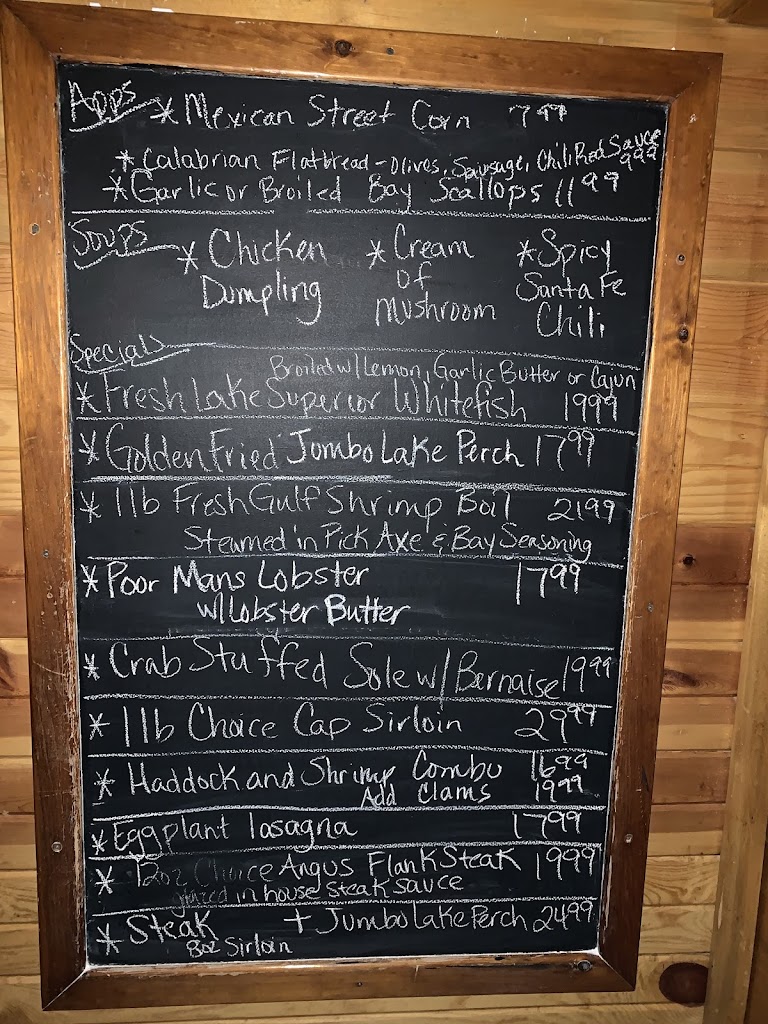 Apps * Mexican Street Corn 7.99
* Calabrian Flatbread - Olives, Sausage, Chili Red Sauce 9.99
* Garlic or Broiled Bay Scallops 11 99
Soups * Chicken Dumpling * Cream of Mushroom * Spicy Santa Fe Chili
Specials
Broiled w/ Lemon, Garlic Butter or Cajun
* Fresh Lake Superior Whitefish 19.99
* Golden Fried Jombo Lake Perch 17 99
* 1 lb Fresh Gulf Shrimp Boil 21.99
Steamed in Pick Axe & Bay Seasoning
* Poor Mans Lobster 17 99
w/ Lobster Butter
* Crab Stuffed Sole w/ Bernaise 19 99
* 1 lb Choice Cap Sirloin 29 99
* Haddock and Shrimp Combo 16 99
Add Clams 19 99
* Eggplant lasagna 17 99
* 12oz Choice Angus Flank Steak 19 99
glazed in house steak sauce
* Steak + Jumbo Lake Perch 24 99
8oz Sirloin